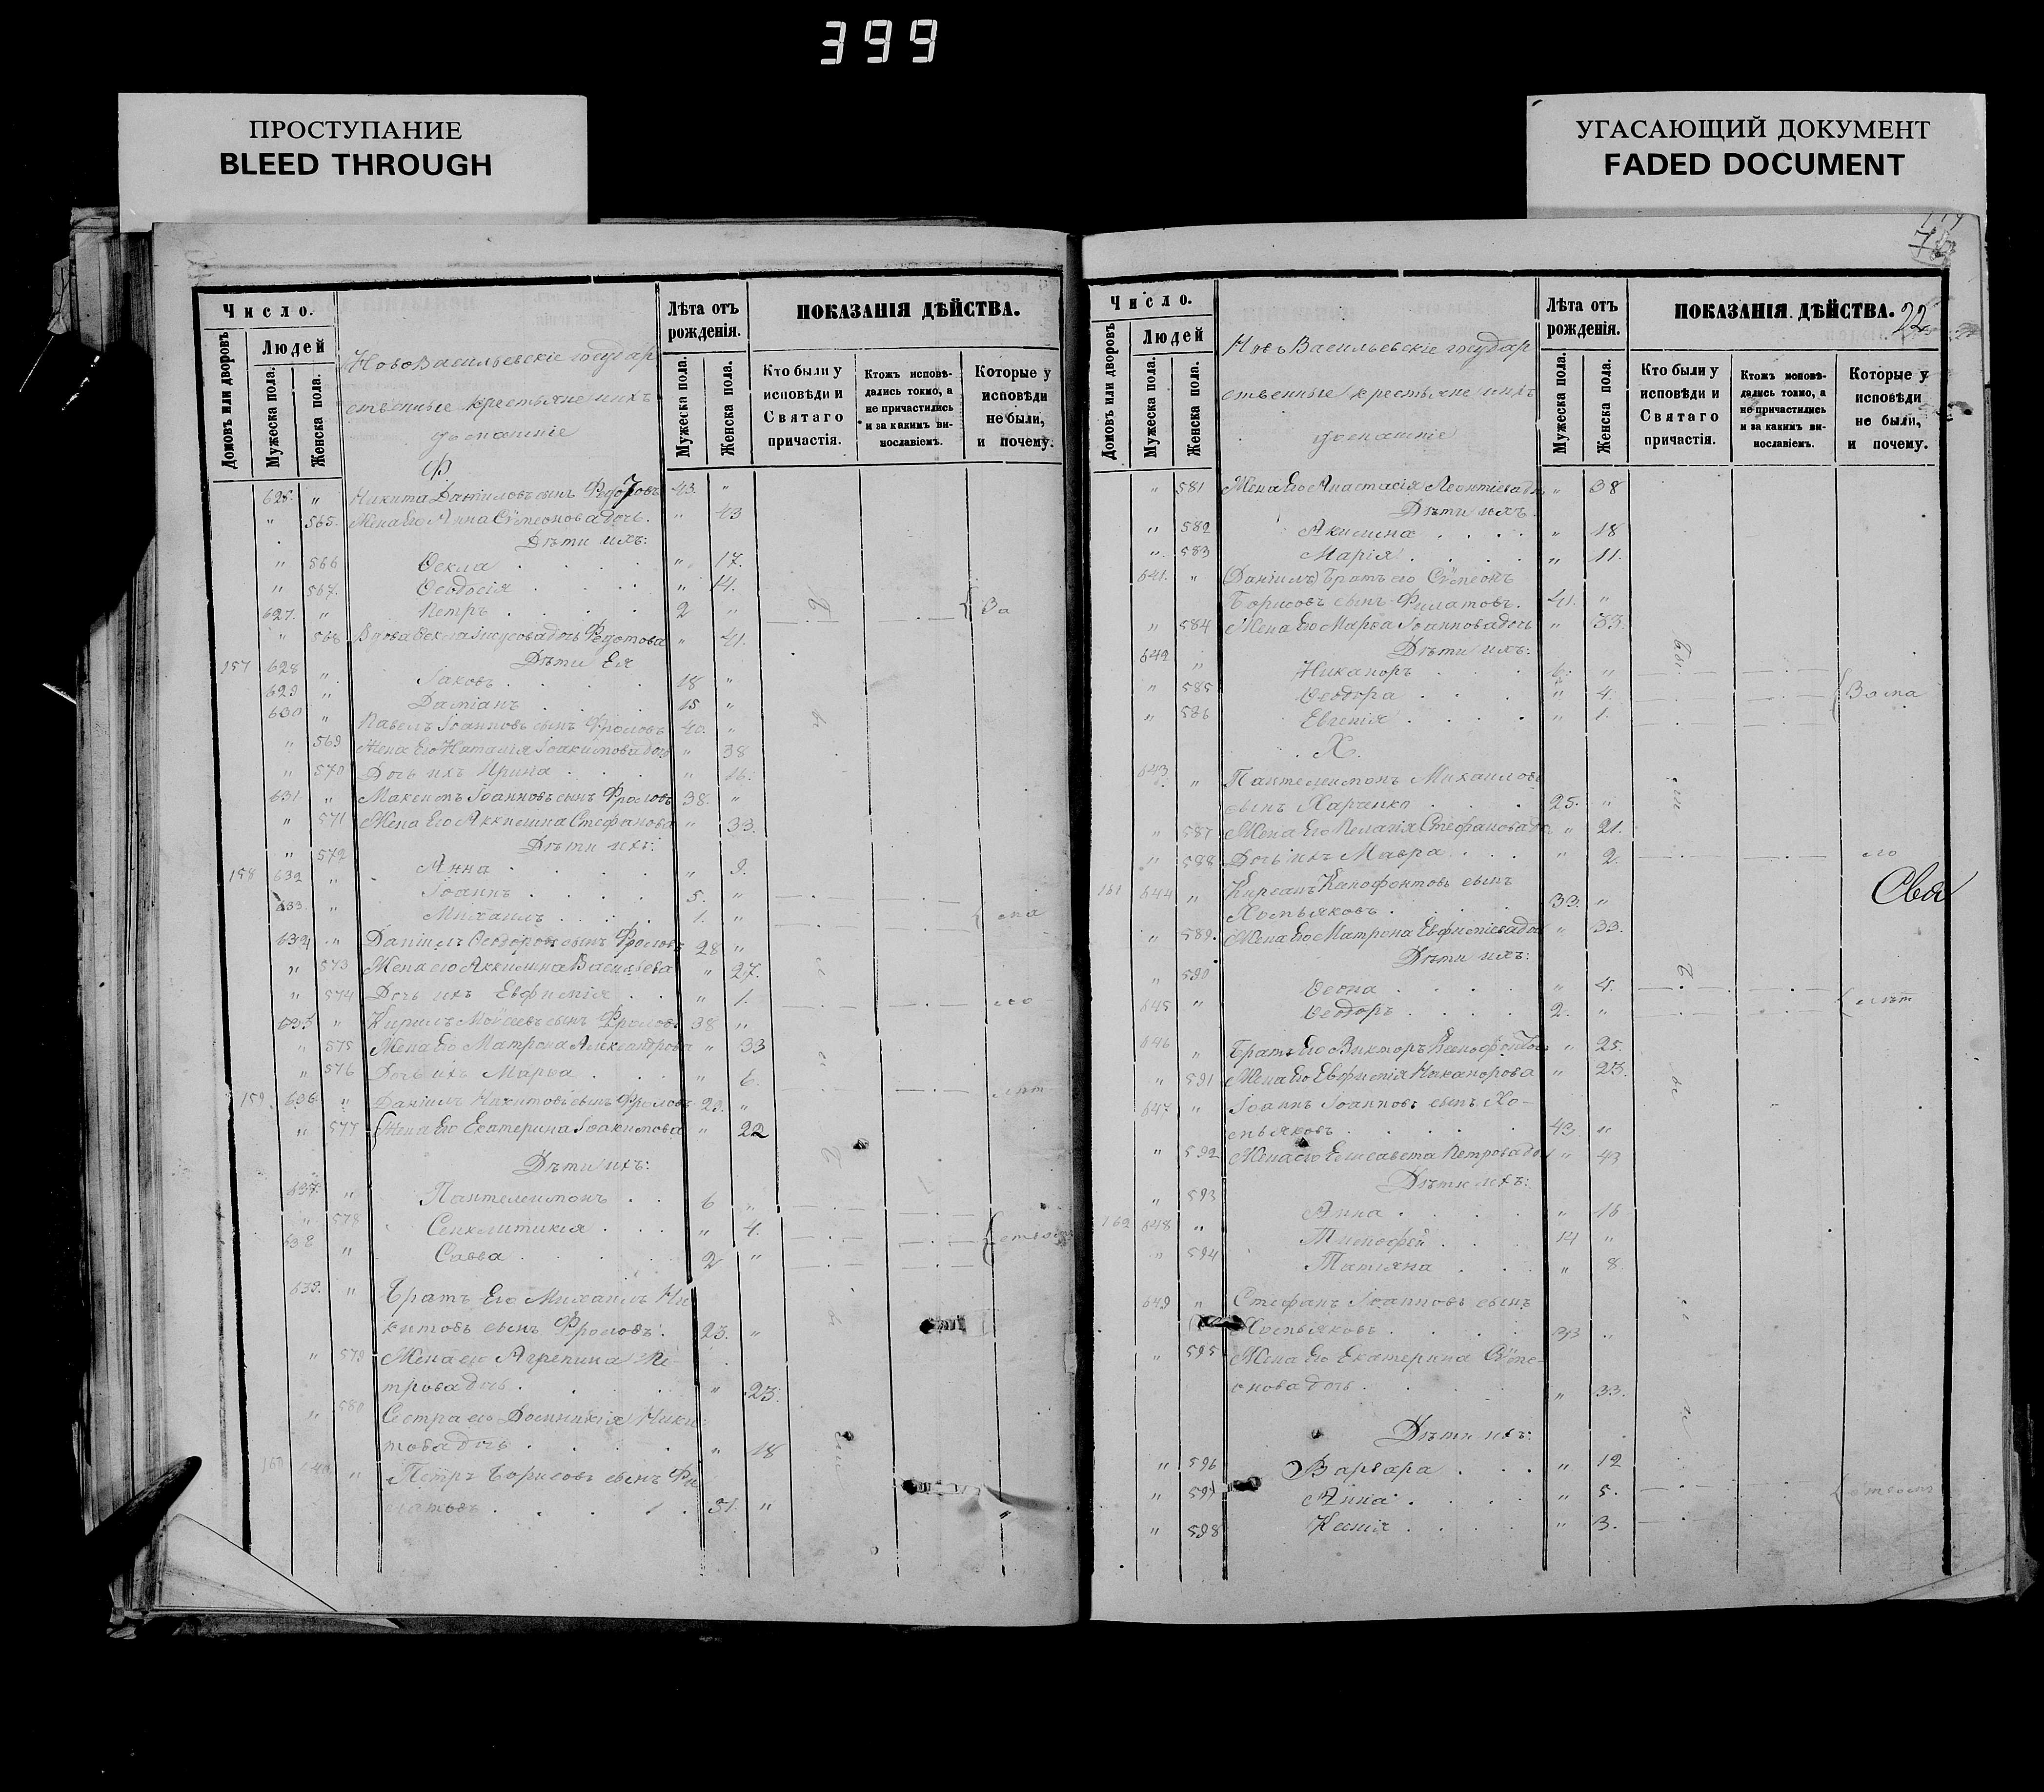 399
ПРОСТУПАНИЕ
BLEED THROUGH
УГАСАЮЩИЙ ДОКУМЕНТ
FADED DOCUMENT
Число.
Людей
Домовъ или дворовъ
Мужеска пола.
Женска пола.
НовоВасильевскіе государ
ственные крестьяне и ихъ
домашніе
Ф
Лѣта отъ рожденія.
Мужеска пола.
Женска пола.
ПОКАЗАНІЯ ДѢЙСТВА.
Кто были у исповѣди и Святаго причастія.
Ктожъ исповѣдались токмо, а не причастились и за какимъ винословіемъ.
Которые у исповѣди не были, и почему.
626. " Никита Даніиловъ сынъ 43. "
" 565. Жена его Анна Сѵмеонова дочь. " 43
Дѣти ихъ:
" 566 Ѳекла " 17.
" 567. Ѳеодосія " 14.
627. " Петръ 2 " За
" 568 Вдова Ѳекла дочь Федотова " 41.
Дѣти Ея
157 628 " Іаковъ 18 "
629 " Даміанъ 15 "
630 " Павелъ Іоанновъ сынъ Фроловъ 40. "
" 569 Жена его Наталія Іоакимова дочь " 38
" 570 Дочь ихъ Ирина " 16.
631 " Максимъ Іоанновъ сынъ Фроловъ 38. "
" 571 Жена Его Аккилина Стефанова " 33.
Дѣти ихъ:
" 572 Анна " 9.
158 632 " Іоаннъ 5. "
633. " Михаилъ 1. " ма
634 " Даніилъ Ѳеодоровъ сынъ Фроловъ 28 "
" 573 Жена его Аккилина Васильева " 27.
" 574 Дочь ихъ Евфимія " 1. ло
635 " Кирилъ Моѵсеевъ сынъ Фроловъ 38 "
" 575 Жена Его Матрона Александрова " 33
" 576 Дочь ихъ Марѳа " 6. лѣт
159. 636 " Даніилъ Никитовъ сынъ Фроловъ 29. "
" 577 Жена Его Екатерина Іоакимова " 22
Дѣти ихъ:
637. " Пантелеимонъ 6 "
" 578 Сенклитикія " 4.
638 " Савва 2 "
639. " Братъ Его Михаилъ Ни
китовъ сынъ Фроловъ. 23. "
" 579 Жена его Агрепина Пе-
трова дочь. " 23.
" 580 Сестра его Домникія Ники-
това дочь " 18
160 640 " Петръ Борисовъ сынъ Фи
латовъ 51. "
22
Число.
Людей
Домовъ или дворовъ
Мужеска пола.
Женска пола.
НовоВасильевскіе государ
ственные крестьяне и ихъ
домашніе
Лѣта отъ рожденія.
Мужеска пола.
Женска пола.
ПОКАЗАНІЯ ДѢЙСТВА.
Кто были у исповѣди и Святаго причастія.
Ктожъ исповѣдались токмо, а не причастились и за какимъ винословіемъ.
Которые у исповѣди не были, и почему.
" 581 Жена Его Анастасія Леонтіева дч " 38
Дѣти ихъ
" 582 Акилина " 18
" 583 Марія " 11.
641. " (Даніилъ) Братъ его Сѵмеонъ
Борисовъ сынъ Филатовъ. 41. "
" 584 Жена Его Марѳа Іоаннова дочь " 33.
Дѣти ихъ:
642 " Никаноръ 6. "
" 585 Ѳеодора " 4.
" 586 Евгенія " 1.
За ма
Х.
643 " Пантелеимонъ Михаиловъ
сынъ Харченко 25. "
" 587 Жена Его Пелагія Стефанова дч " 21.
" 588 Дочь ихъ Мавра " 2. ло
161 644 " Кирсанъ сынъ
Хомьяковъ 33. "
Сва
" 589. Жена Его Матрона Евфиміева дочь " 33.
Дѣти ихъ:
" 590 " 4.
645 " Ѳеодоръ 2. "
лѣт
646 " Братъ Его Викторъ " 25.
" 591 Жена Его Евфимія Никанорова " 23.
647 " Іоаннъ Іоанновъ сынъ Хо-
мьяковъ 43 "
" 592 Жена его Елисавета Петрова до " 43
Дѣти ихъ:
" 593 Анна " 16
162 648 " Тимофей 14 "
" 594 Татіяна " 8.
649 " Стефанъ Іоанновъ сынъ
Хомьяковъ 33 "
" 595 Жена Его Екатерина Сѵме-
онова дочь " 33.
Дѣти ихъ:
" 596 Варвара " 12
" 597 Анна " 5.
" 598 Ксенія " 3.